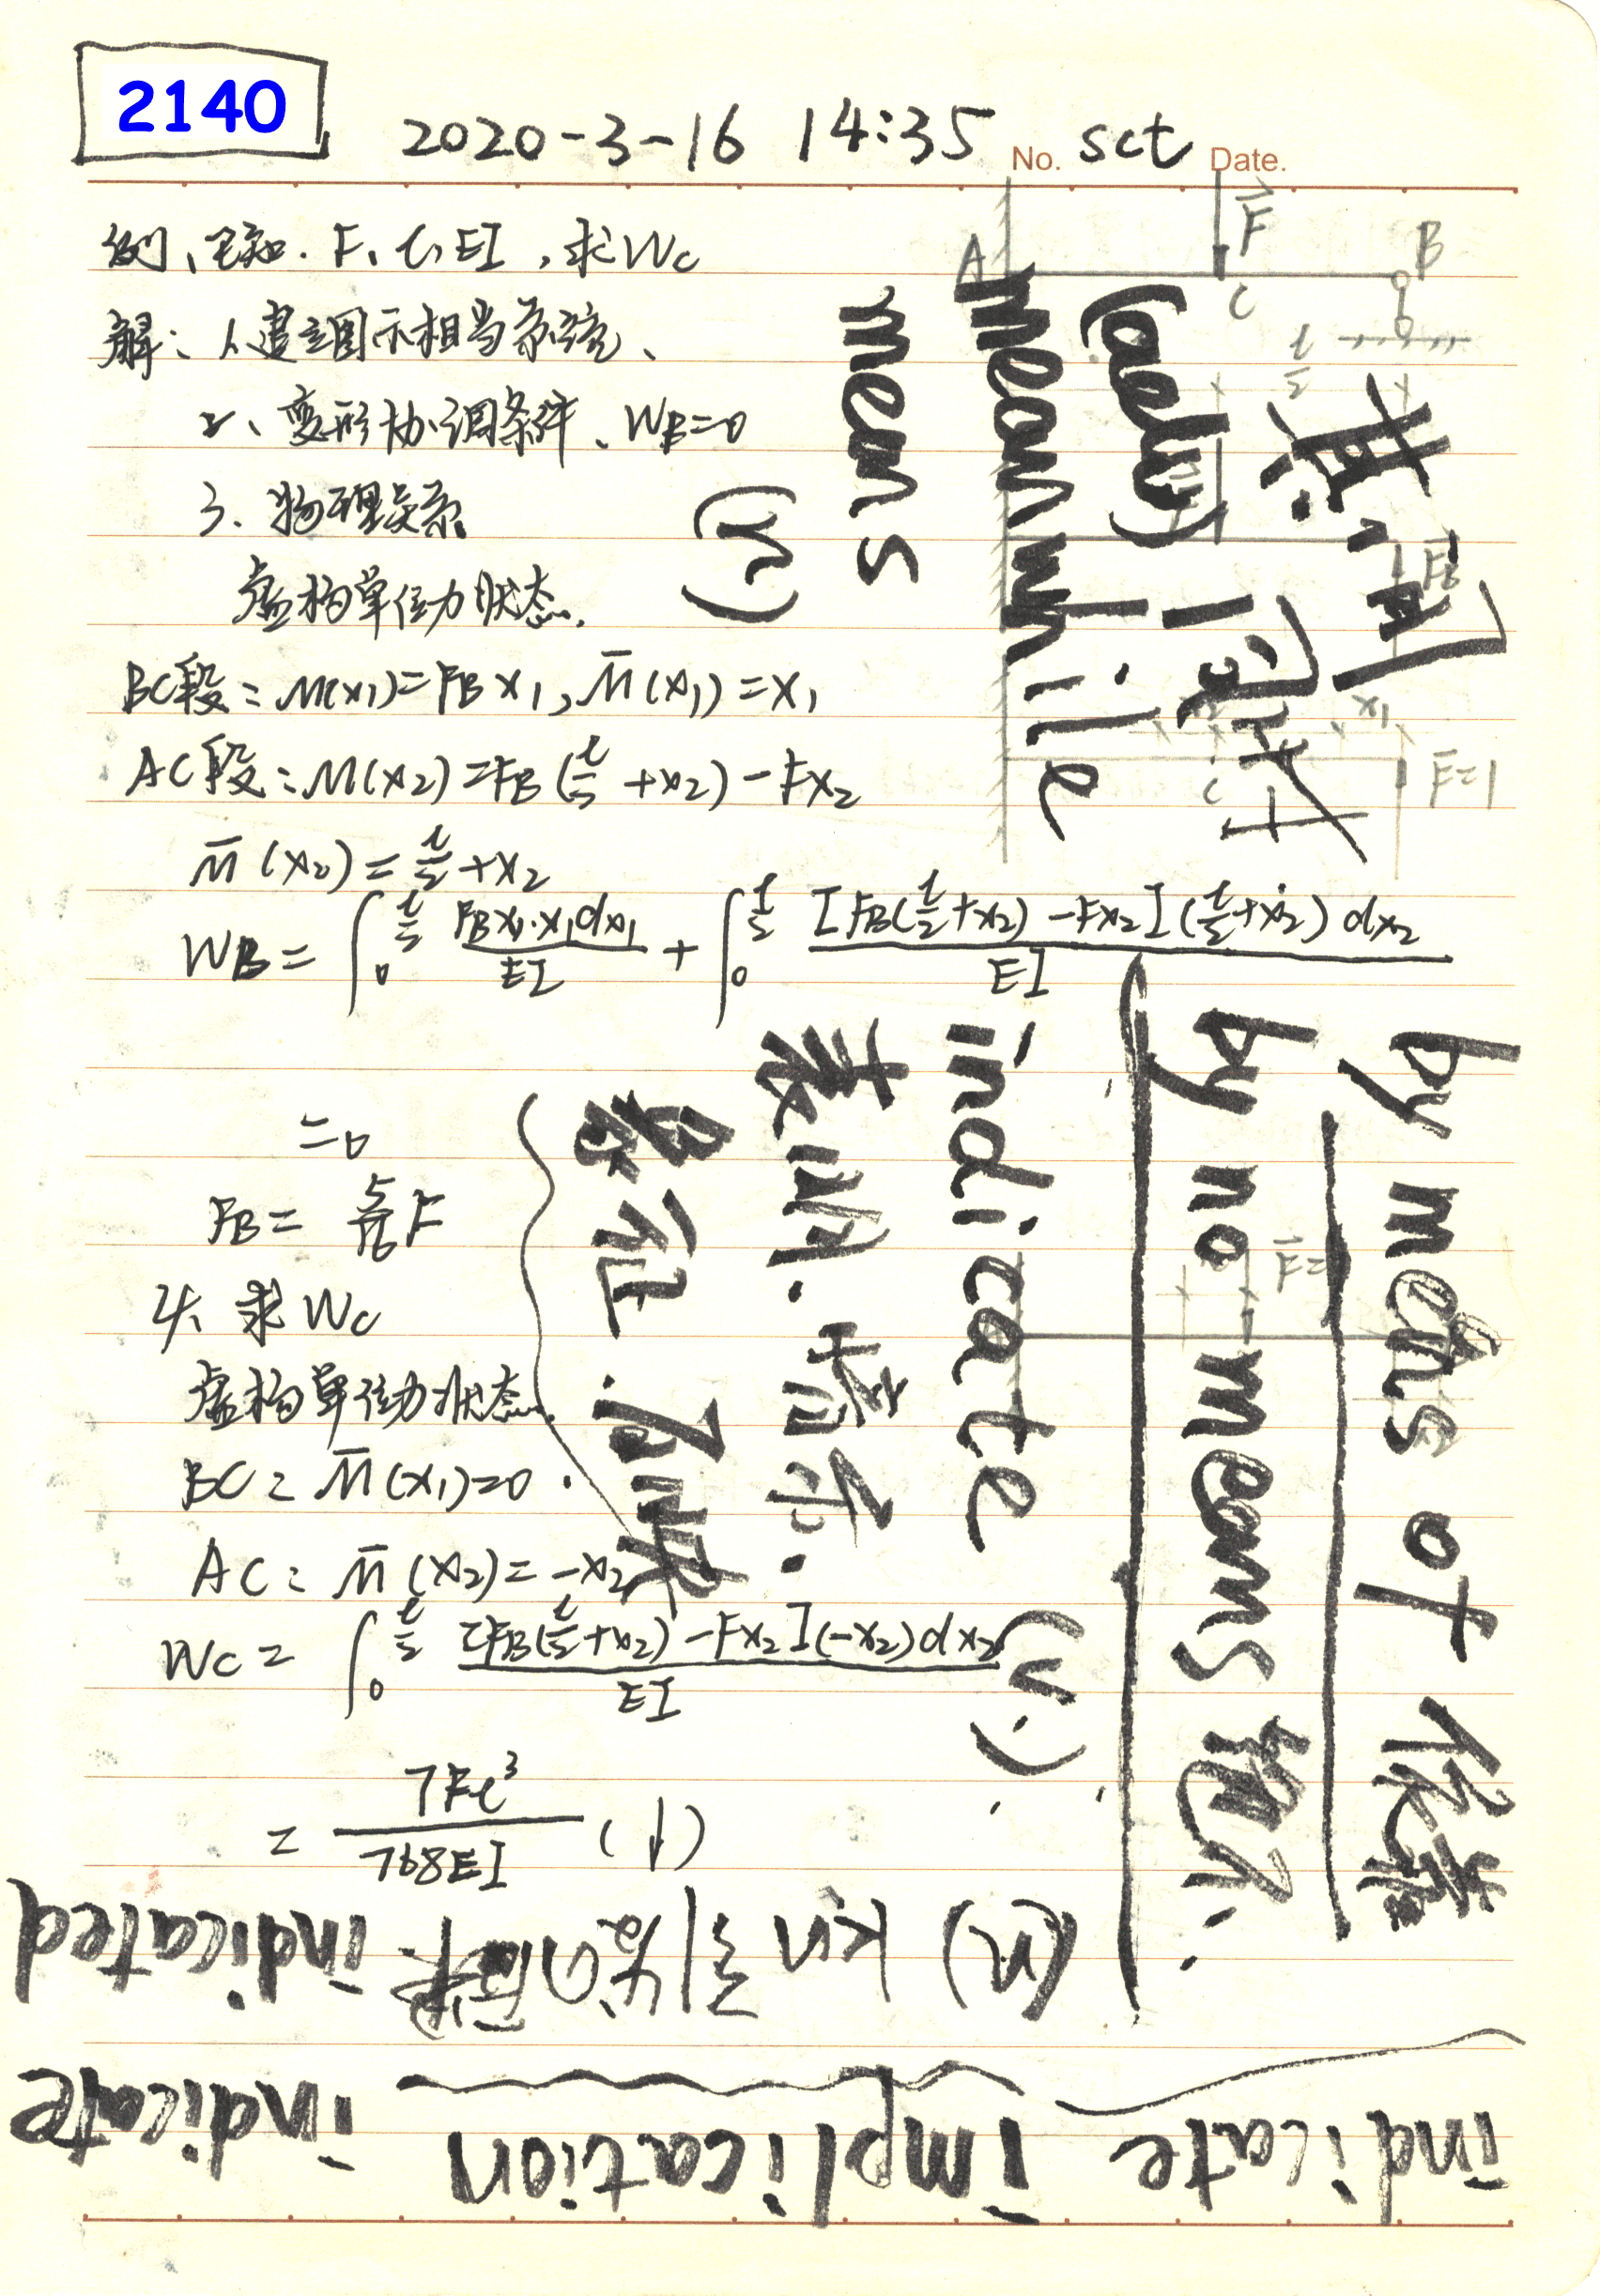 2140
2020-3-16 14:35 No. sct Date.
例、已知. F、l、EI,求Wc
解:1、建立图示相当系统、
2、变形协调条件、WB=0
3、物理关系
虚构单位力状态.
BC段:M(x1)=FBx1,M̄(x1)=x1
AC段:M(x2)=FB(l/2+x2)-Fx2
M̄(x2)=l/2+x2
WB=∫0 l/2 FBx1·x1dx1/EI+∫0 l/2 [FB(l/2+x2)-Fx2](l/2+x2)dx2/EI
=0
FB=5/16F
4、求Wc
虚构单位力状态.
BC:M̄(x1)=0.
AC:M̄(x2)=-x2
Wc=∫0 l/2 [FB(l/2+x2)-Fx2](-x2)dx2/EI
=7Fl³/768EI(↓)
A
F
B
C
l/2
FB
x1
C
F=1
F=
其间
(adv) 同时
meanwhile
means
(n)
by means of 依靠
by no means 绝不.
indicate (v.)
表明.暗示.
象征.
indicated
(n)
indicate
implication
indicate